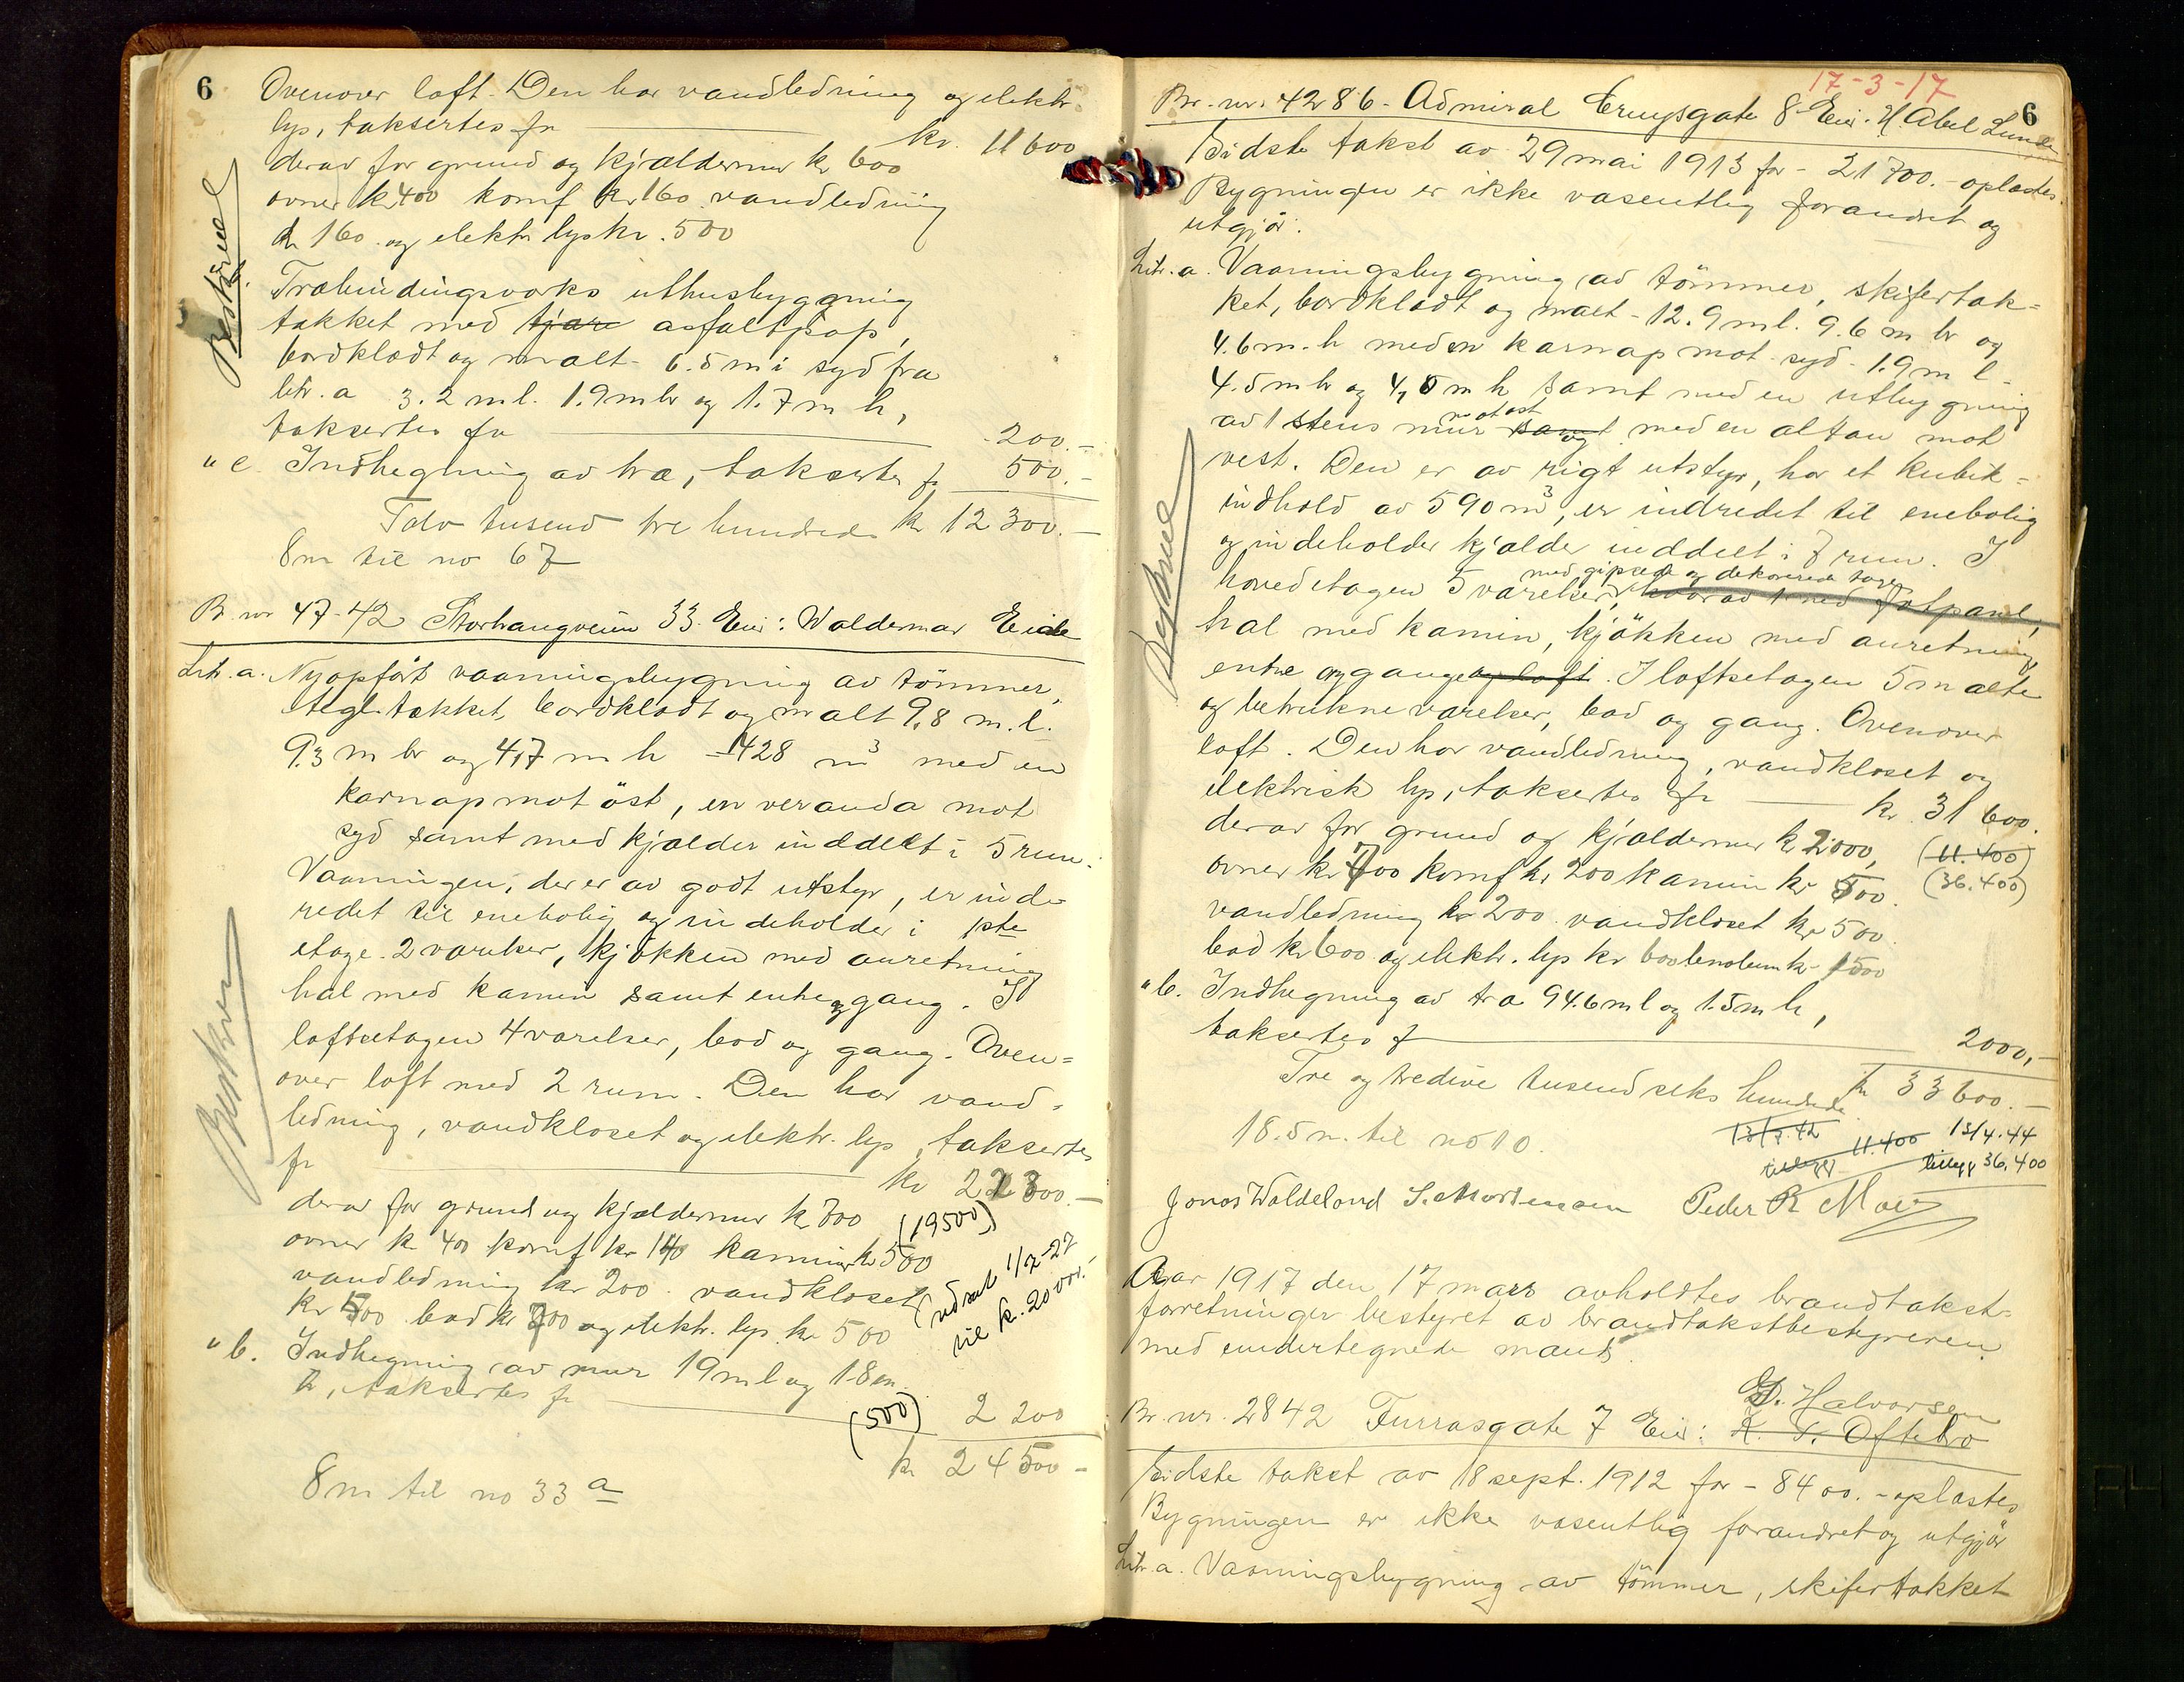 6
Ovenover loft. Den har vandledning og elektr.
lys, taksertes for kr. 11600
derav for grund og kjældermur kr 600
ovner kr 400 komf kr 160 vandledning
kr 160 og elektr lys kr. 500
Beskrevet
Træbindingsverks uthusbygning
takket med tjære asfaltpap,
bordklædt og malt - 6.5 m i syd fra
litr. a 3.2 m l. 1.9 m br og 1.7 m h,
taksertes for 200.-
" c. Indhegning av træ, taksertes for 500.-
Tolv tusend tre hundrede kr 12300.-
8 m til no 67
Br. nr 47-42 Storhaugveien 33. Eier: Waldemar Eide
Litr. a. Nyopført vaaningsbygning av tømmer,
teglstakket, bordklædt og malt 9,8 m. l.
9.3 m br og 4,7 m h - 428 m³ med en
karnap mot øst, en veranda mot
syd samt med kjælder inddelt i 5 rum.
Vaaningen, der er av godt utstyr, er inde-
redet til enebolig og indeholder i 1ste
etage 2 værelser, kjøkken med anretning
hal med kamin samt entre og gang. I
loftsetagen 4 værelser, bod og gang. Oven=
over loft med 2 rum. Den har vand=
ledning, vandkloset og elektr. lys, taksertes
for kr 22300.-
derav for grund og kjældermur kr 800 (19500)
ovner kr 400 komf kr 140 kamin kr 500
vandledning kr 200. vandkloset
kr 500 bad kr 700 og elektr. lys kr 500
(nedsat 1/7-27
til k. 20000.-
" b. Indhegning av mur 19 m l og 1.8 m
h, taksertes for (500) 2 200
kr 24500-
8 m til no 33 a
17-3-17
6
Br. nr. 4286 - Admiral Cruysgate 8 Eier. H. Abel Lunde
Sidste takst av 29 mai 1913 for - 21700.- oplæstes.
Bygningen er ikke væsentlig forandret og
utgjør:
Litr. a. Vaaningsbygning av tømmer, skifertak=
ket, bordklædt og malt - 12.9 m l. 9.6 m br og
4.6 m. h med en karnap mot syd - 1.9 m l -
4.5 m br og 4,5 m h samt med en utbygning
av 1 stens mur mot øst samt og med en altan mot
vest. Den er av rigt utstyr, har et kubik=
indhold av 590 m³, er indredet til enebolig
og indeholder kjælder inddelt i 7 rum. I
hovedetagen 5 værelser, med gipsede og dekorerede tage hvorav 1 med fotpanel,
hal med kamin, kjøkken med anretning
entre og gange og loft. I loftsetagen 5 malte
og betrukne værelser, bad og gang. Ovenover
loft. Den har vandledning, vandkloset og
elektrisk lys, taksertes for kr. 31600.
derav for grund og kjældermur kr 2000, (11.400)
ovner kr 700 komf kr 200 kamin kr 500. (36.400)
vandledning kr 200. vandkloset kr 500
bad kr 600 og elektr. lys kr 600 linoleum kr 1500
" b. Indhegning av træ 94.6 m l og 1.5 m h,
taksertes for 2000,-
Tre og tredive tusend seks hundrede kr 33600.-
18.5 m. til no 10.
13/3.42 11.400 13/4.44
tillegg tillegg 36.400
Jonas Waldeland S. Mortensen Peder R Moe
Aar 1917 den 17 mars avholdtes brandtakst-
forretninger bestyret av brandtakstbestyreren
med undertegnede mænd.
D. Halvorsen
Br. nr. 2842 Turrasgate 7 Eier: K. T. Oftebro
Sidste takst av 18 sept. 1912 for - 8400.- oplæstes
Bygningen er ikke væsentlig forandret og utgjør
Litr. a. Vaaningsbygning av tømmer, skifertakket